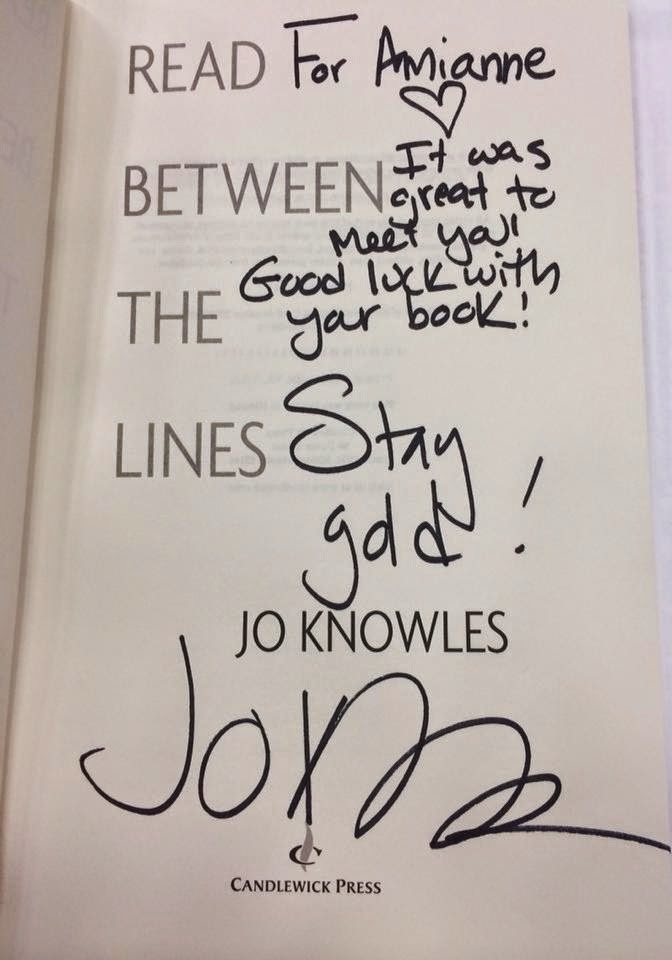 READ For Amianne
It was
BETWEEN great to
Meet you!
Good luck with
THE your book!
LINES Stay
gold!
JO KNOWLES
Jo K
CANDLEWICK PRESS